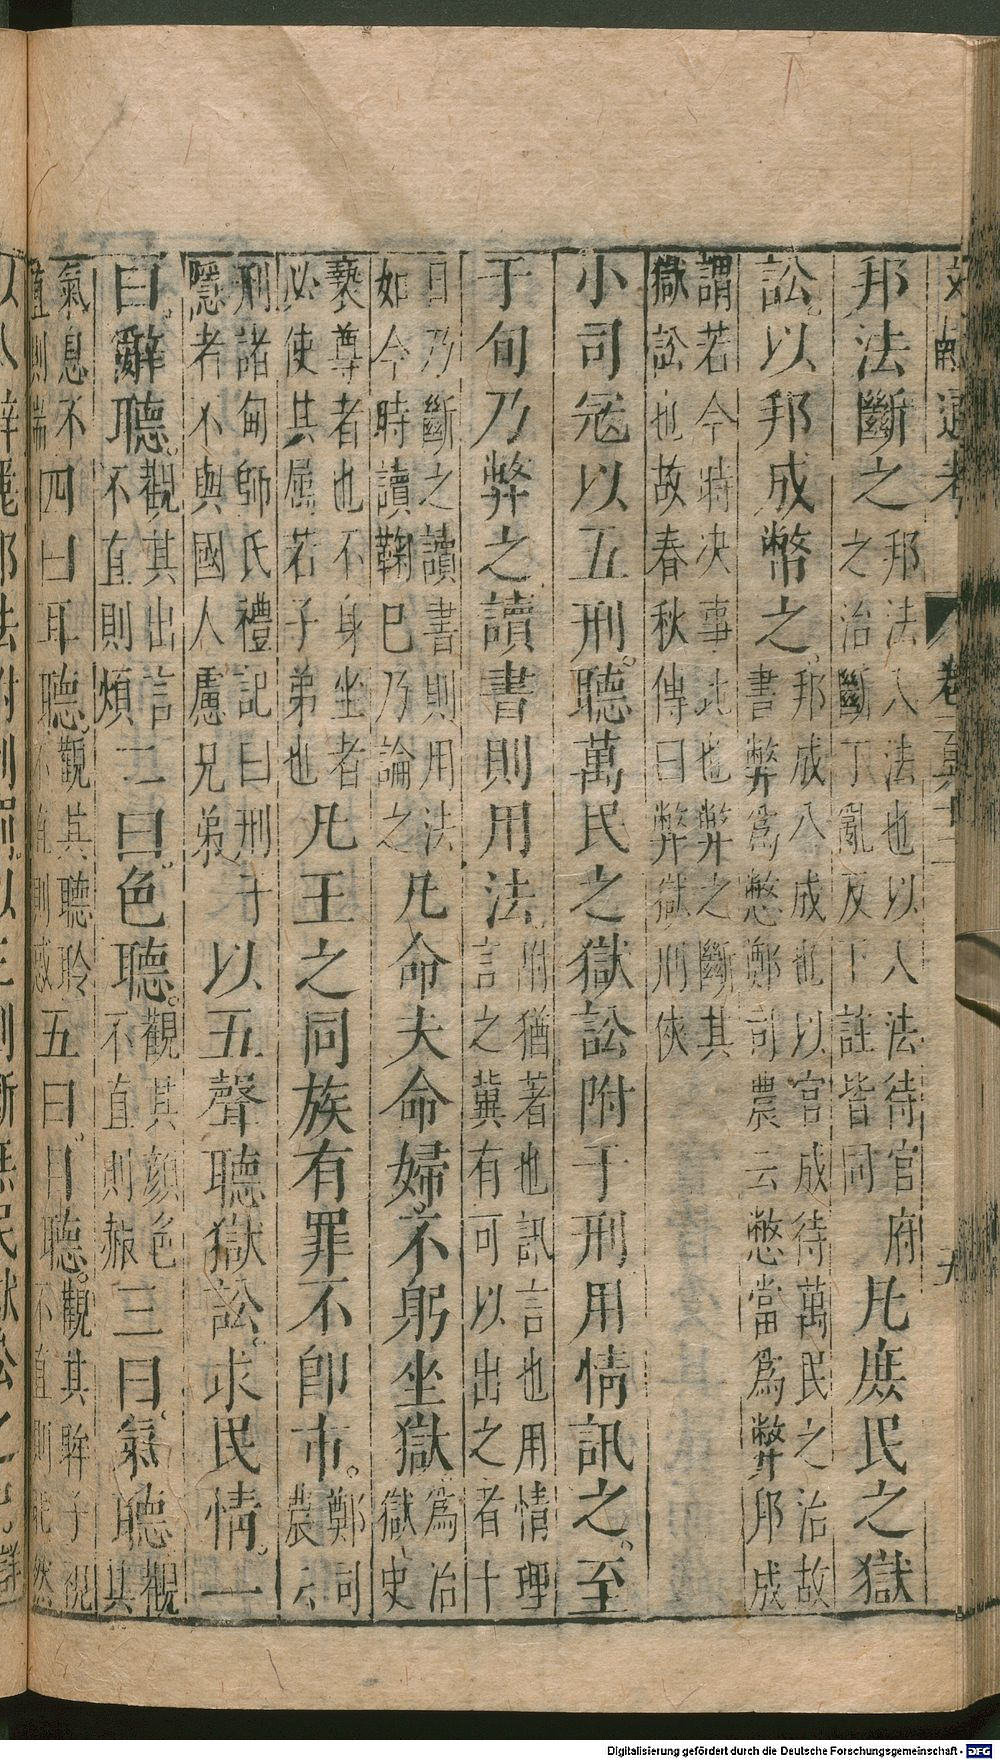 文獻通考 卷一百六十二 九
邦法斷之邦法八法也以八法待官府之治斷丁亂反下註皆同凡庶民之獄
訟以邦成幣之邦成八成也以官成待萬民之治故書弊為憋鄭司農云憋當為弊邦成
謂若今時决事比也弊之斷其獄訟也故春秋傳曰弊獄刑俠
小司冦以五刑聽萬民之獄訟附于刑用情訊之至
于旬乃弊之讀書則用法附猶著也訊言也用情理言之冀有可以出之者十
日乃斷之讀書則用法如今時讀鞫巳乃論之凡命夫命婦不躬坐獄為治獄史
褻尊者也不身坐者必使其属若子弟也凡王之同族有罪不即市鄭司農云
刑諸甸師氏禮記曰刑于隱者不與國人慮兄弟以五聲聽獄訟求民情一
曰辭聽觀其出言不直則煩二曰色聽觀其顔色不直則赧三曰氣聽觀其
氣息不直則喘四曰耳聽觀其聽聆不直則惑五曰目聽觀其眸子視不直則眊然
Digitalisierung gefördert durch die Deutsche Forschungsgemeinschaft - DFG